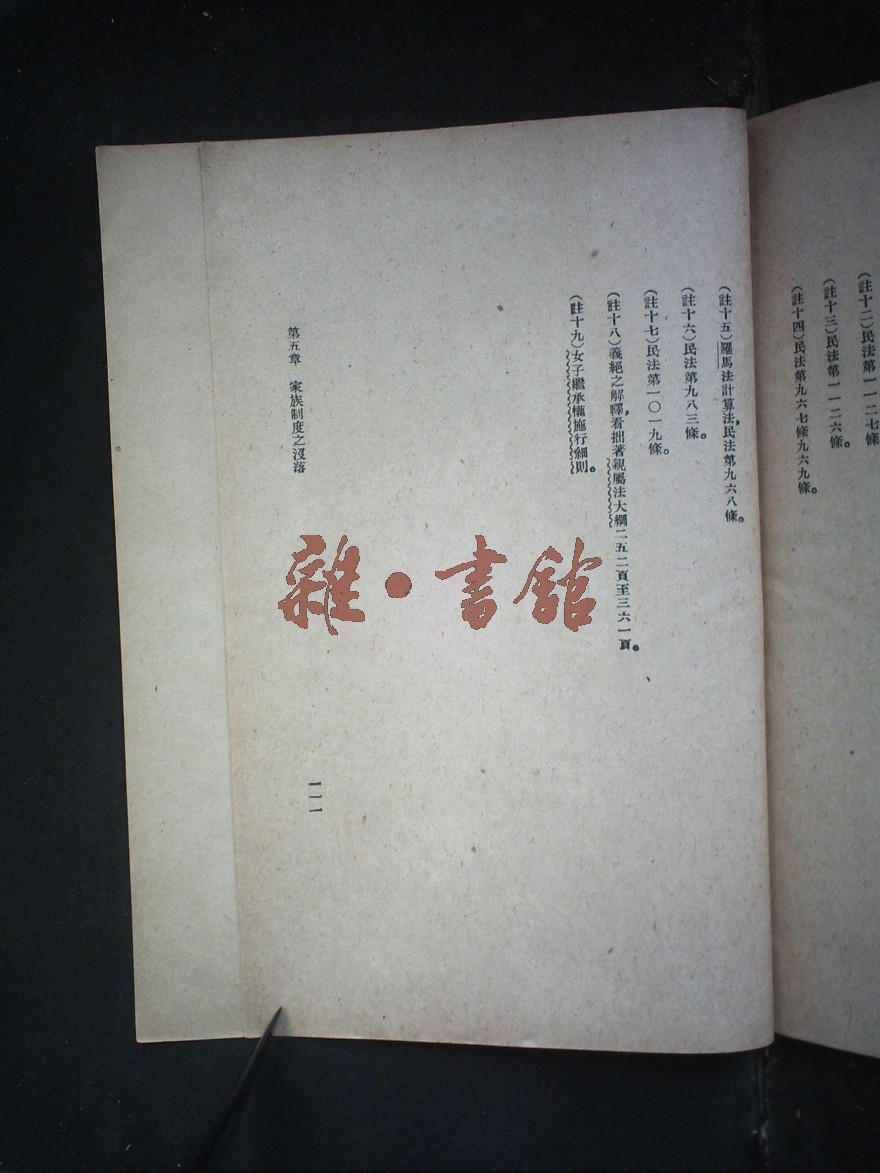 (註十二)民法第一一二七條
(註十三)民法第一一二六條。
(註十四)民法第九六七條九六九條。
(註十五)羅馬法計算法,民法第九六八條。
(註十六)民法第九八三條。
(註十七)民法第一〇一九條。
(註十八)義絕之解釋,看拙著親屬法大綱二五二頁至三六一頁。
(註十九)女子繼承權施行細則。
第五章 家族制度之沒落
一一一
雜・書館